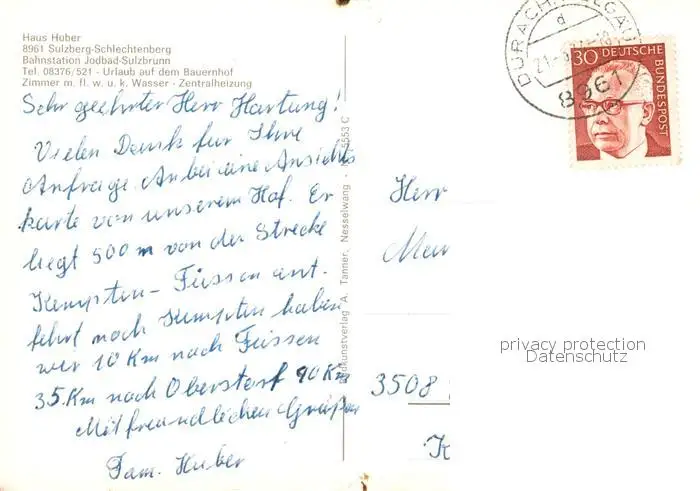 Haus Huber
8961 Sulzberg-Schlechtenberg
Bahnstation Jodbad-Sulzbrunn
Tel. 08376/521 - Urlaub auf dem Bauernhof
Zimmer m. fl. w. u. k. Wasser - Zentralheizung
Sehr geehrter Herr Hartung!
Vielen Dank für Ihre
Anfrage Anbei eine Ansichts
karte von unserem Hof. Er
liegt 500 m von der Strecke
Kempten - Füssen ent.
fehrt nach Kempten haben
wir 10 Km nach Füssen
35 Km nach Oberstorf 40 Km
Mit freundlichen Grüßen
Fam. Huber
kunstverlag A. Tanner, Nesselwang 5553 C
DURACH
d
8961
30 DEUTSCHE
BUNDESPOST
Herr
3508
privacy protection
Datenschutz